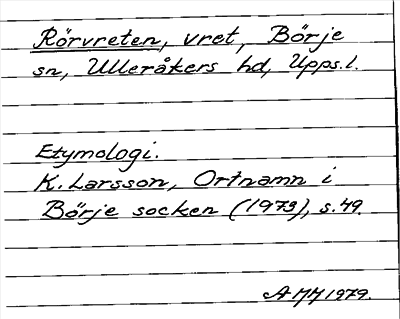 Rörvreten, vret, Börje
sn, Ulleråkers hd, Upps.l.
Etymologi.
K. Larsson, Ortnamn i
Börje socken (1979), s.49.
AMM 1979.